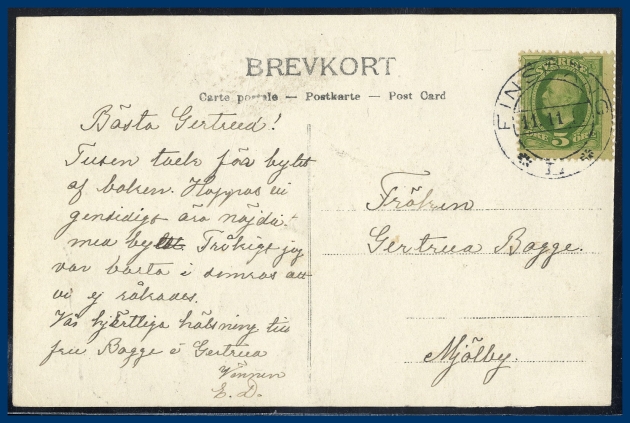 BREVKORT
Carte postale — Postkarte — Post Card
Bästa Gertrud!
Tusen tack för bytet
af boken. Hoppas vi
gensidigt äro nöjda
med bytet. Tråkigt jag
var borta i somras att
vi ej råkades.
Vår hjärtliga hälsning till
fru Bagge & Gertrud
Vännen
E. D.
FINSPONG
11 11
5
Fröken
Gertrud Bagge.
Mjölby.